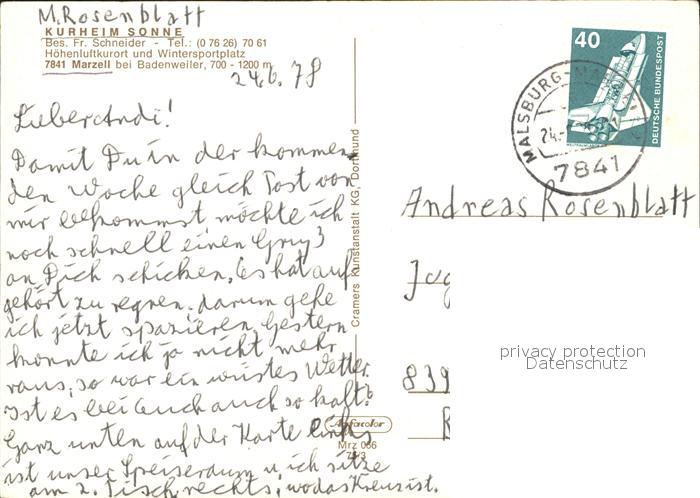 M. Rosenblatt
KURHEIM SONNE
Bes. Fr. Schneider - Tel.: (0 76 26) 70 61
Höhenluftkurort und Wintersportplatz
7841 Marzell bei Badenweiler, 700 - 1200 m
24.6.78
Lieber Andi!
Damit Du in der kommen-
den Woche gleich Post von
mir bekommst möchte ich
noch schnell einen Gruß
an Dich schicken. Es hat auf
gehört zu regnen. darum gehe
ich jetzt spazieren. Gestern
konnte ich ja nicht mehr
raus, so war ein wüstes Wetter.
Ist es bei Euch auch so kalt?
Ganz unten auf der Karte links
ist unser Speiseraum u. ich sitze
am 2. Tisch rechts, wo das Kreuz ist.
Cramers Kunstanstalt KG, Dortmund
Agfacolor
Mrz 066
40
DEUTSCHE BUNDESPOST
MALSBURG-MA
24.-
7841
Andreas Rosenblatt
Jug
839
privacy protection
Datenschutz